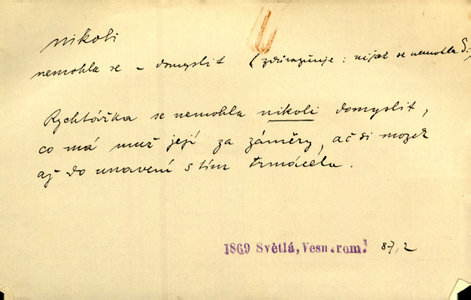 nikoli
nemohla se – domyslit (zdůrazňuje: nijak se nemohla d.)
Rychtářka se nemohla nikoli domyslit,
co má muž její za záměry, ač si mozek
až do unavení s tím trmácela.
1869 Světlá, Vesn. rom.² 87, 2